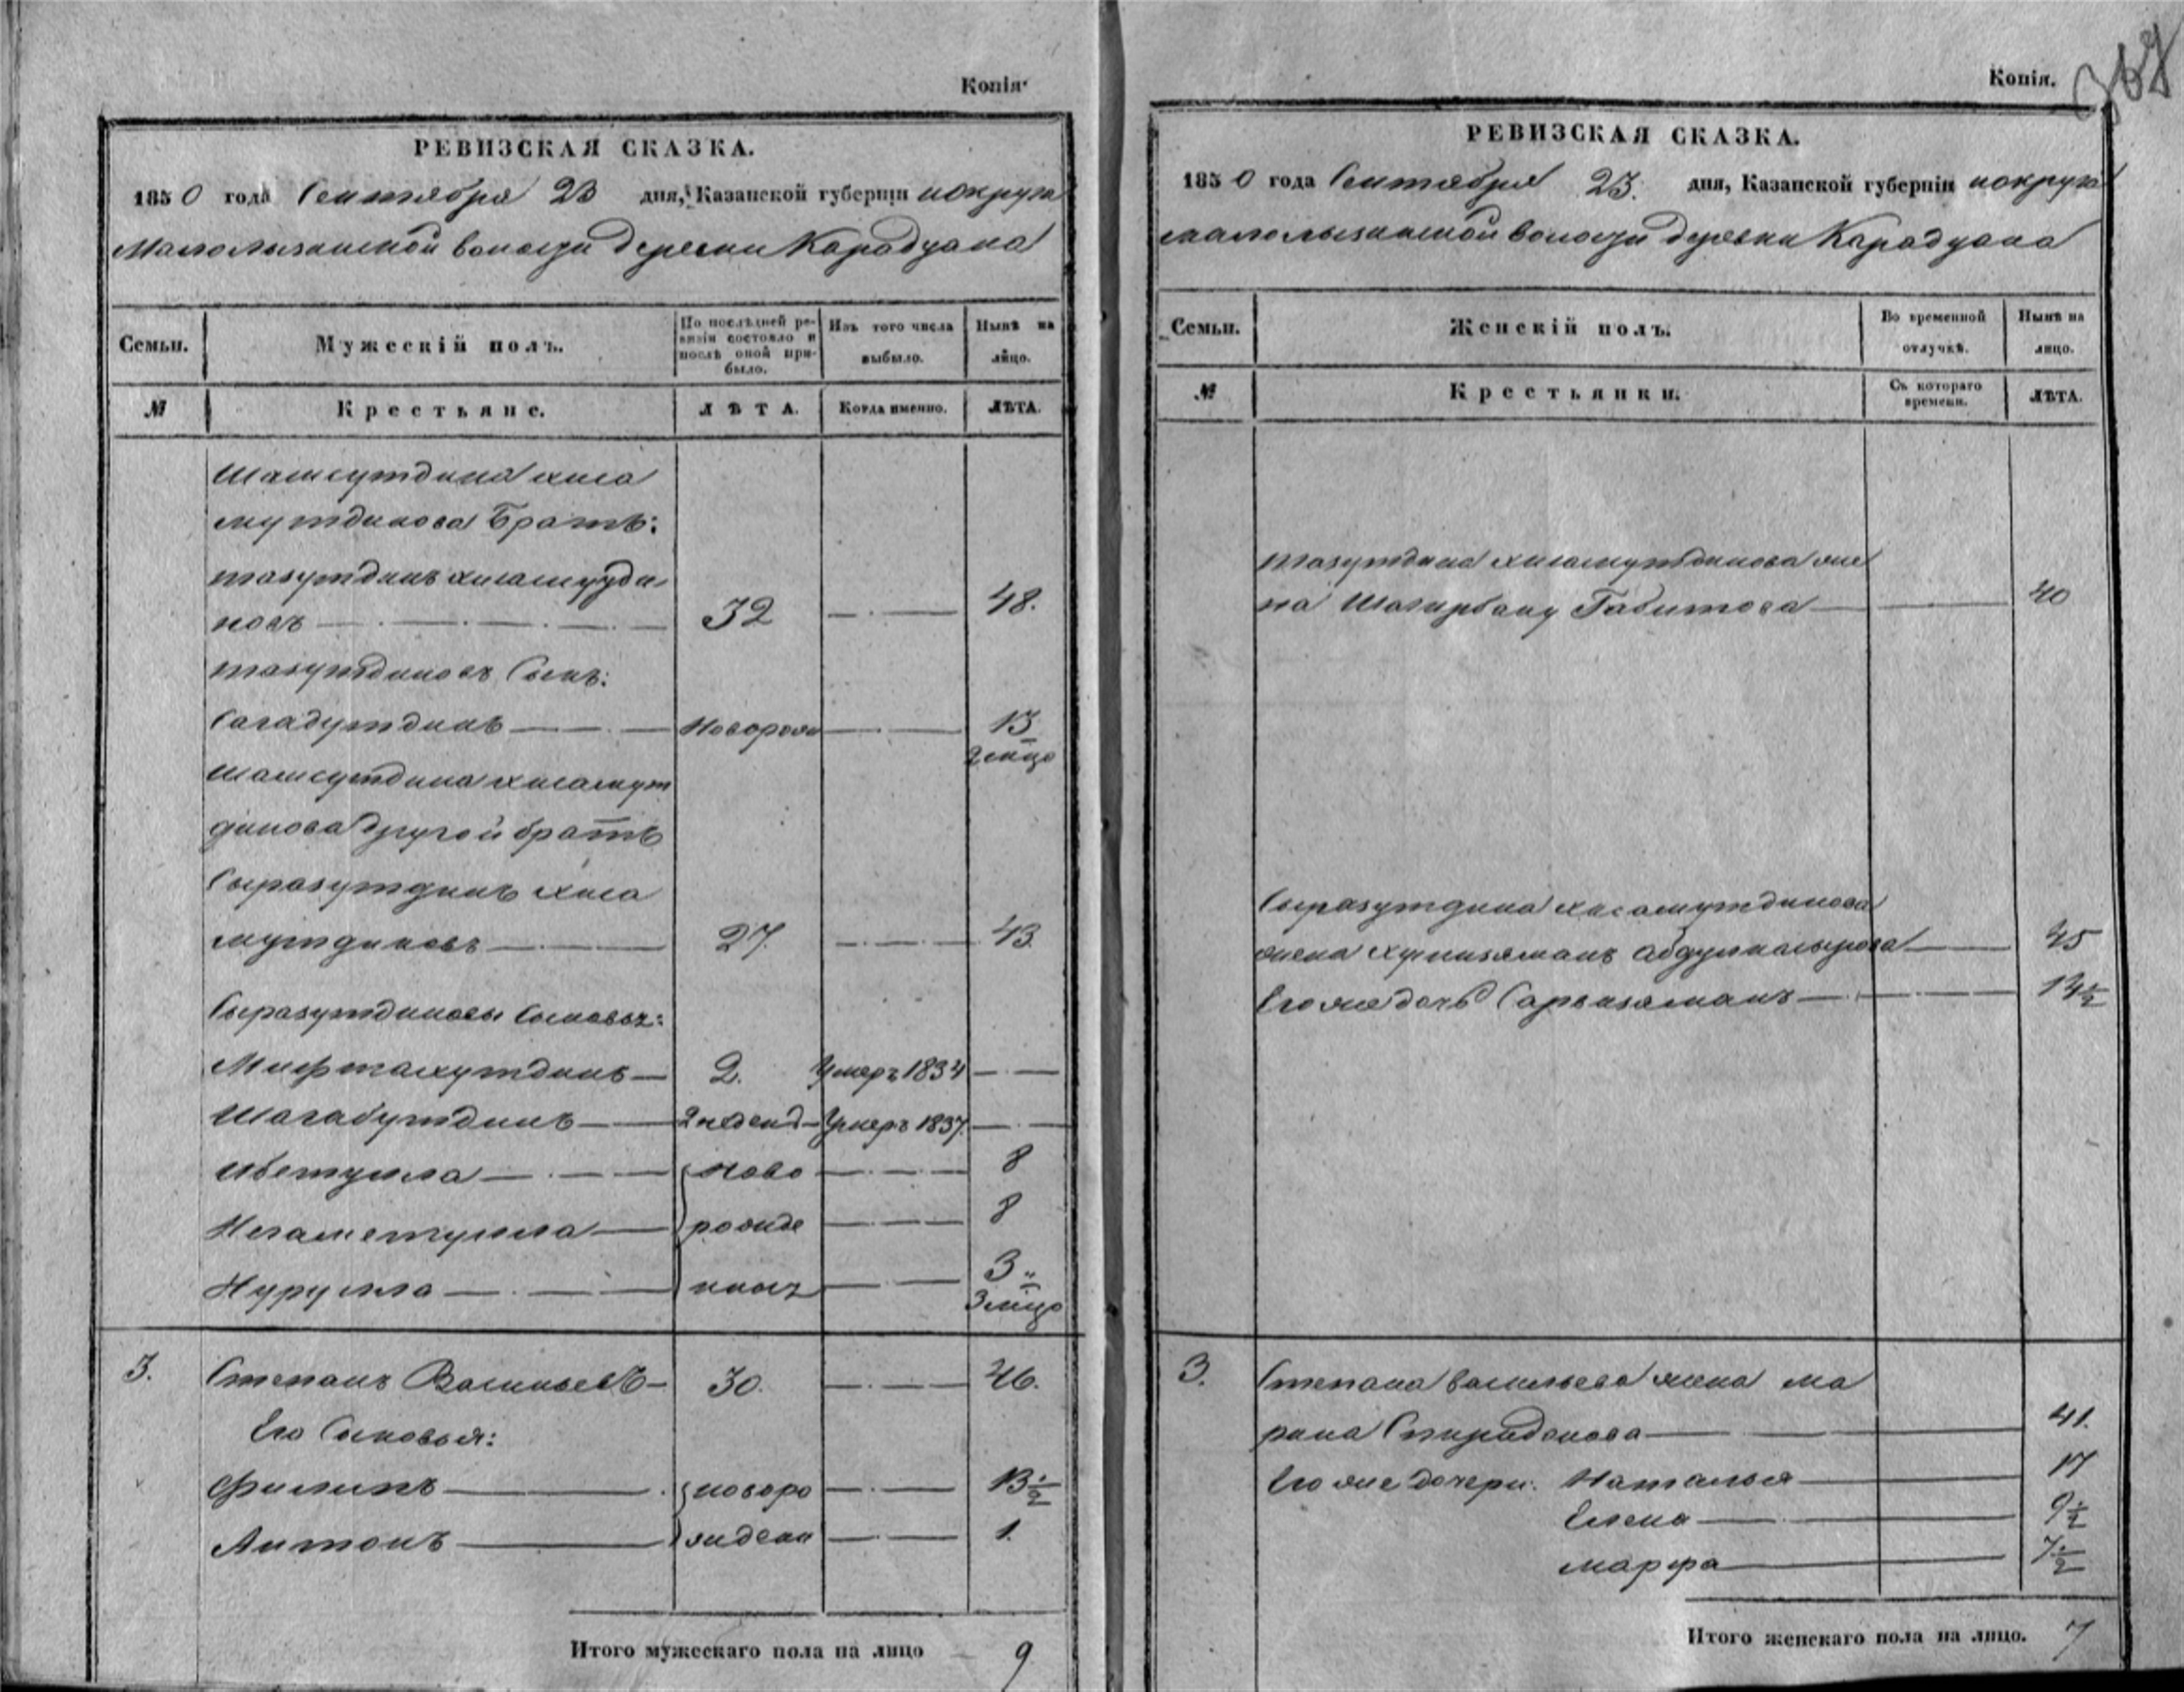 Копія.
РЕВИЗСКАЯ СКАЗКА.
1850 года Сентября 23 дня, Казанской губерніи и округа
Малолызинской волости деревни Карадуана
Семьи.
Мужескій полъ.
По послѣдней ревизіи состояло и послѣ оной прибыло.
Изъ того числа выбыло.
Нынѣ на лицо.
№
Крестьяне.
ЛѢТА.
Когда именно.
ЛѢТА.
Шамсутдина Хиса
мутдинова Братъ:
тазутдинъ хисамутди
новъ 32 48.
тазутдиновъ Сынъ:
Сагадутдинъ Новорож 13
2 лица
шамсутдина хисамут
динова другой братъ
Сыразутдинъ хиса
мутдиновъ 27. 43.
Сыразутдиновы Сыновья:
Мифтахутдинъ 2. Умеръ 1834
Шагабутдинъ 2 недел Умеръ 1837.
Ибетулла ново 8
Негаметулла рожде 8
Нурулла ныя 3
3 лица
3. Степанъ Васильевъ 30. 46.
Его Сыновья:
Филипъ новоро 13 ½
Антонъ жден 1.
Итого мужескаго пола на лицо 9
Копія.
367
РЕВИЗСКАЯ СКАЗКА.
1850 года Сентября 23. дня, Казанской губерніи и округа
малолызинской волости деревни Карадуана
Семьи.
Женскій полъ.
Во временной отлучкѣ.
Нынѣ на лицо.
№
Крестьянки.
Съ котораго времени.
ЛѢТА.
тазутдина хисамутдинова же
на Шагирбану Габитова 40
Сыразутдина хисамутдинова
жена хусниземанъ абдулнасырова 45
Его же дочь Сарвиземанъ 14 ½
3. Степана васильева жена ма
рина Спиридонова 41.
Его же дочери: Наталья 17
Елена 9 ½
марфа 7 ½
Итого женскаго пола на лицо. 7